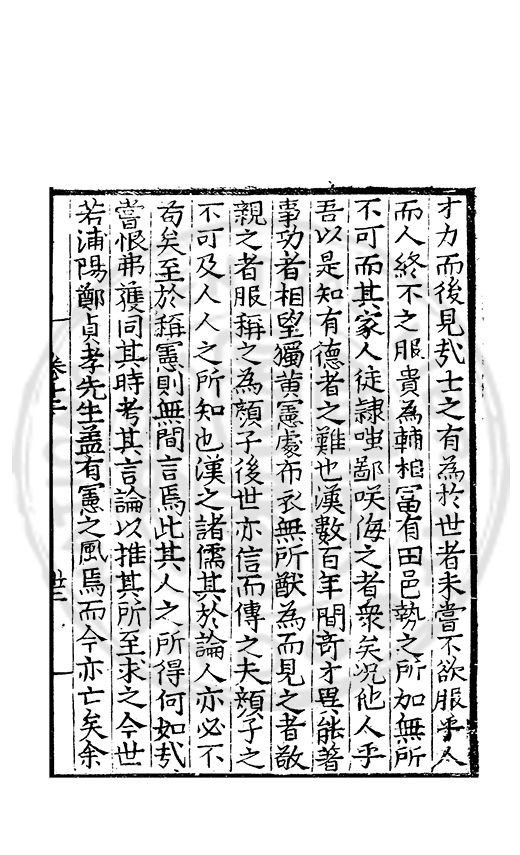 才力而後見㢤士之有為於世者未嘗不欲服乎人
而人終不之服貴為輔相富有田邑勢之所加無所
不可而其家人徒隷嗤鄙咲侮之者衆矣况他人乎
吾以是知有德者之難也漢數百年間竒才異能著
事功者相望獨黄憲處布衣無所猷為而見之者敬
親之者服稱之為顔子後世亦信而傳之夫顔子之
不可及人人之所知也漢之諸儒其於論人亦必不
苟矣至於稱憲則無間言焉此其人之所得何如㢤
嘗恨弗獲同其時考其言論以推其所至求之今世
若浦陽鄭貞孝先生盖有憲之風焉而今亦亡矣余